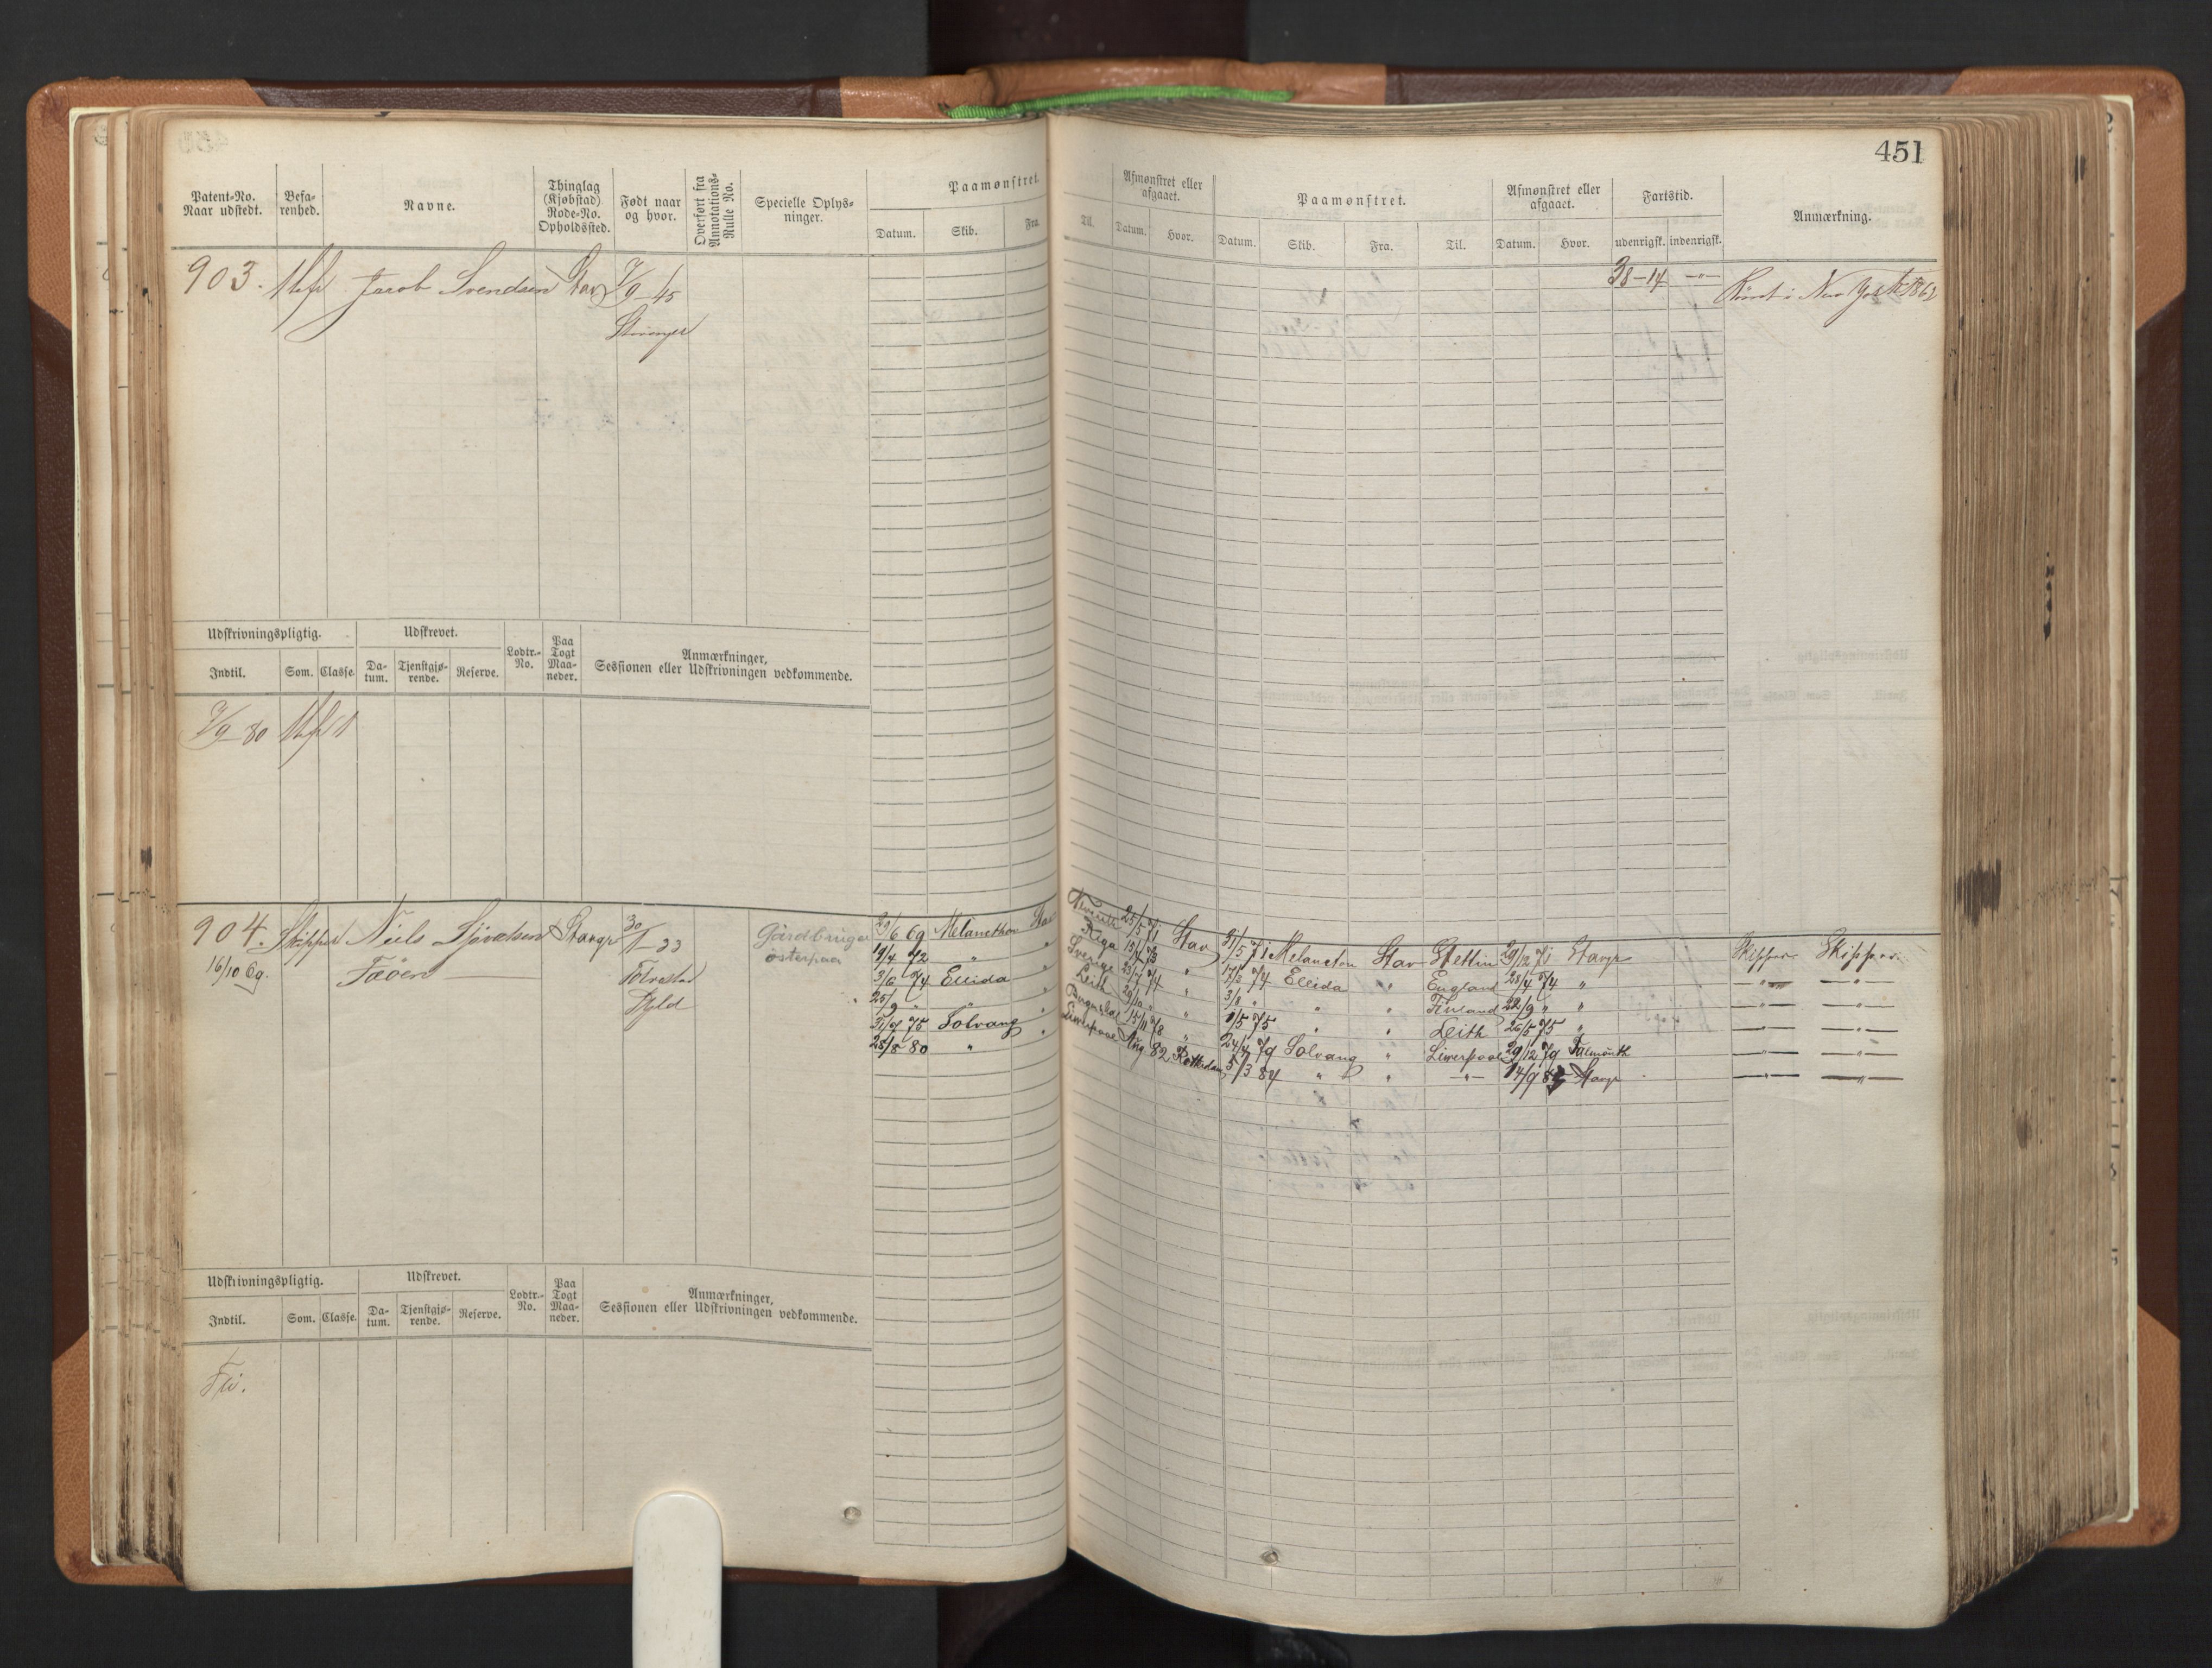 451
Patent-No. Naar udstedt. Befarenhed. Navne. Thinglag (Kjøbstad) Rode-No. Opholdssted. Født naar og hvor. Overført fra Annotations-Rulle No. Specielle Oplysninger. Paamønstret. Datum. Skib. Fra.
Til. Afmønstret eller afgaaet. Datum. Hvor. Paamønstret. Datum. Skib. Fra. Til. Afmønstret eller afgaaet. Datum. Hvor. Fartstid. udenrigsk. indenrigsk. Anmærkning.
903. Jacob Svendsen Stav 7/9-45
38-14 -"- Rømt i New York 1862
Stavanger
Udskrivningspligtig. Udskrevet. Lodtr.-No. Paa Togt Maaneder. Anmærkninger, Sessionen eller Udskrivningen vedkommende.
Indtil. Som. Classe. Datum. Tjenstgjørende. Reserve.
7/9-80
904. Skipper Niels Sjövalsen Stavgr 30/1-33 Gårdbruger 29/6 69 Melancthon Stav
16/10 69. Faöen Torvestad østerpaa 19/4 72 " "
Skjold 3/6 74 Ellida "
25/9 " " "
31/7 75 Solvang "
25/8 80 " "
25/5 71 Stav 31/5 71 Melancton Stav Stettin 29/12 71 Stavgr Skipper Skipper
Riga 15/4 73 " 17/3 74 Ellida " England 28/4 74 " -"- -"-
Sverige 23/7 74 " 3/8 " " " Finland 22/9 " " -"- -"-
Leith 29/10 " " 1/5 75 " " Leith 26/5 75 " -"- -"-
15/11 78 " 24/4 79 Solvang " Liverpool 29/12 79 Falmouth -"- -"-
Liverpool Aug 82 Rotterdam 5/3 84 " " -"- 14/9 Stavgr -"- -"-
Udskrivningspligtig. Udskrevet. Lodtr.-No. Paa Togt Maaneder. Anmærkninger, Sessionen eller Udskrivningen vedkommende.
Indtil. Som. Classe. Datum. Tjenstgjørende. Reserve.
Fri.